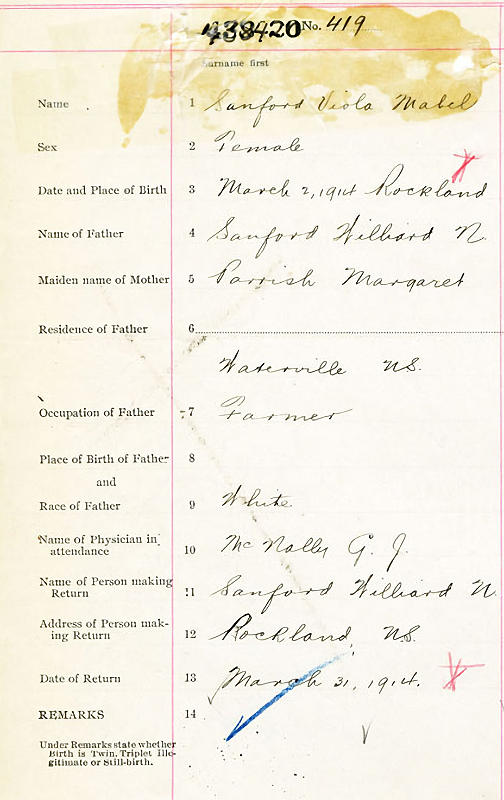 438420 No. 419
Surname first
Name 1 Sanford Viola Mabel
Sex 2 Female
Date and Place of Birth 3 March 2, 1914 Rockland
Name of Father 4 Sanford Williard N.
Maiden name of Mother 5 Parrish Margaret
Residence of Father 6
Waterville N.S.
Occupation of Father 7 Farmer
Place of Birth of Father 8
and
Race of Father 9 White
Name of Physician in attendance 10 McNally G. J.
Name of Person making Return 11 Sanford Williard N.
Address of Person making Return 12 Rockland, N.S.
Date of Return 13 March 31, 1914.
REMARKS 14
Under Remarks state whether
Birth is Twin, Triplet Ille-
gitimate or Still-birth.